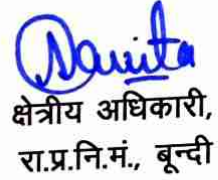 Namita
क्षेत्रीय अधिकारी,
रा.प्र.नि.मं., बून्दी